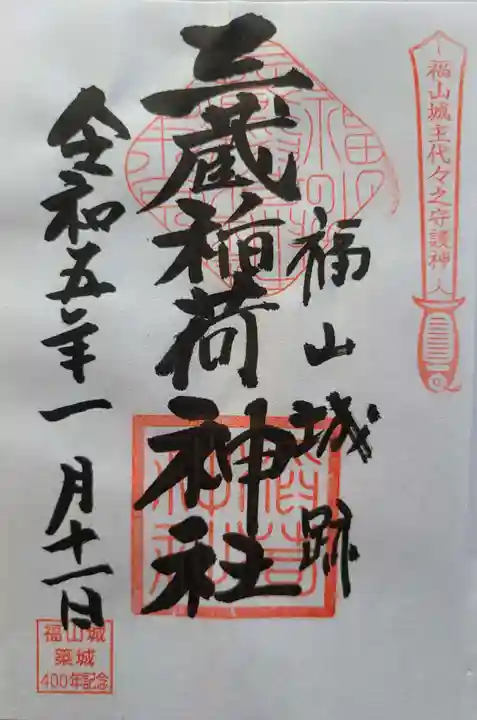 福山城主代々之守護神
福山城跡
三蔵稲荷神社
令和五年一月十一日
福山城
築城
400年記念